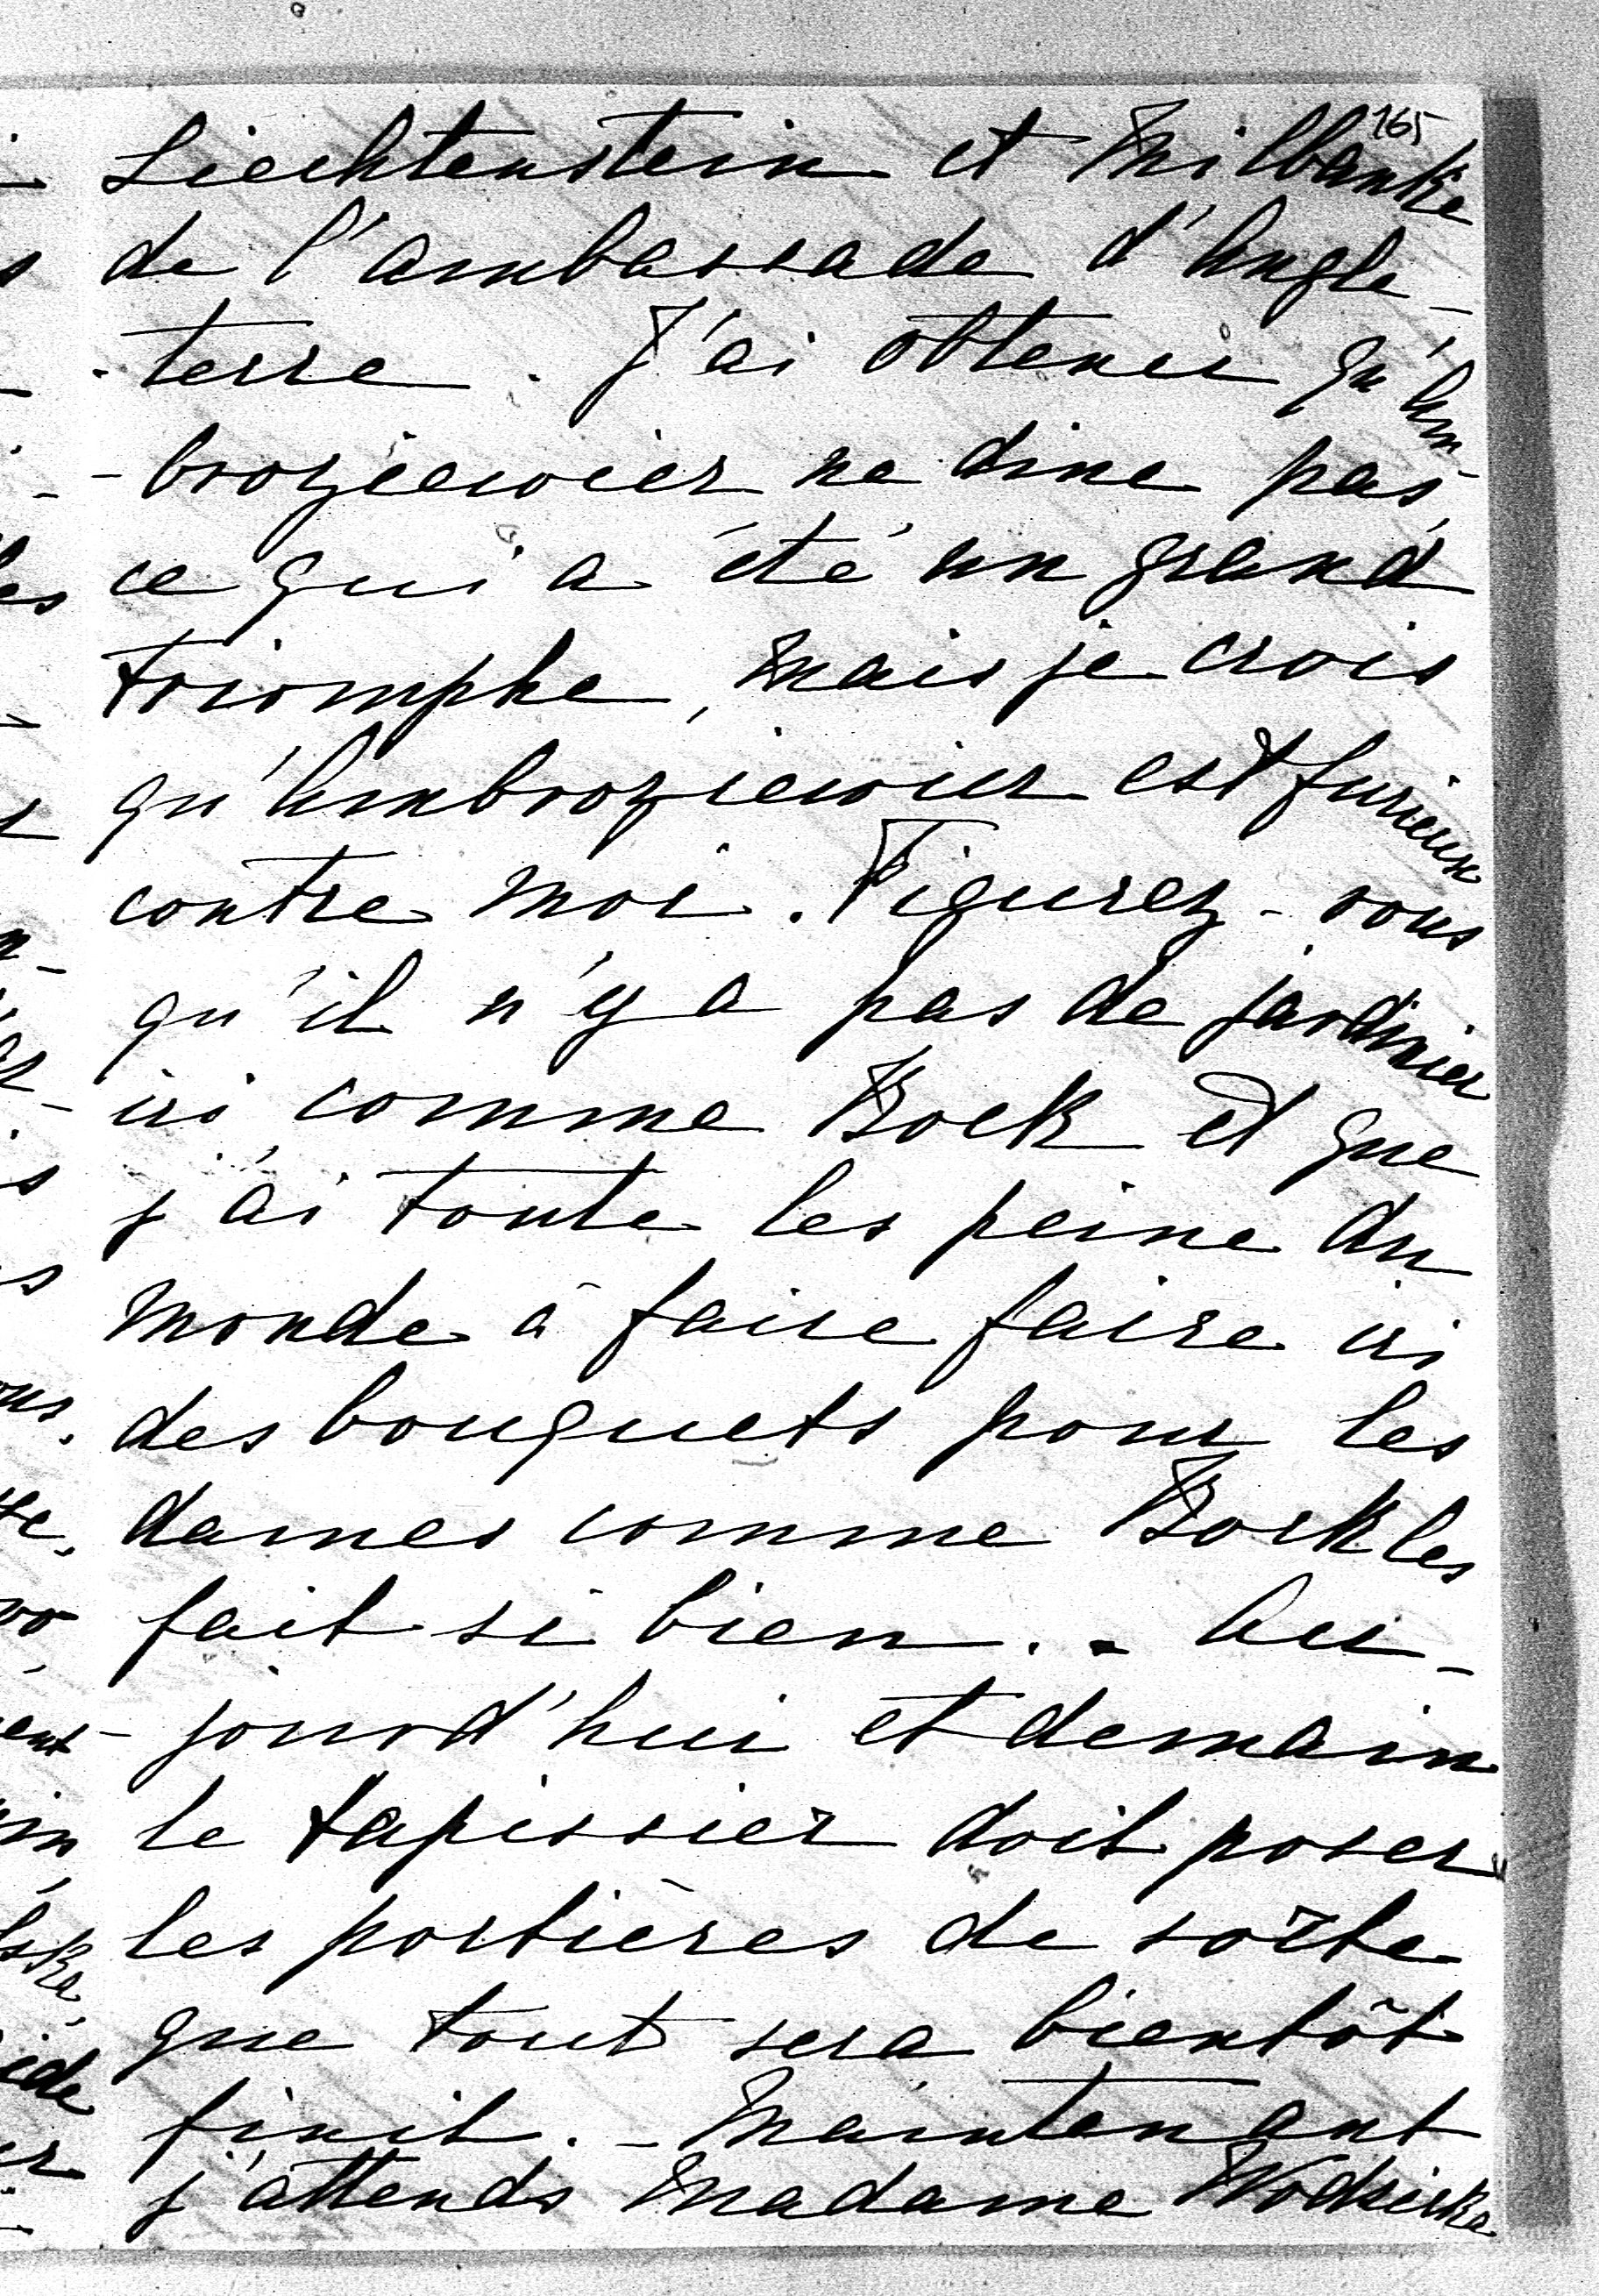 165
Liechtenstein et Milbanke
de l'ambassade d'Angle-
-terre. J'ai obtenu qu'Am-
-broziewicz ne dine pas,
ce qui a été un grand
triomphe, mais je crois
qu'Ambroziewicz est furieux
contre moi. Figurez-vous
qu'il n'y a pas de jardinier
ici comme Bock et que
j'ai toute les peine du
monde à faire faire ici
des bouquets pour les
dames comme Bock les
fait si bien. - Au-
-jourd'hui et demain
le tapissier doit poser
les portières de sorte
que tout sera bientôt
finit. - Maintenant
j'attends Madame Wodzicka